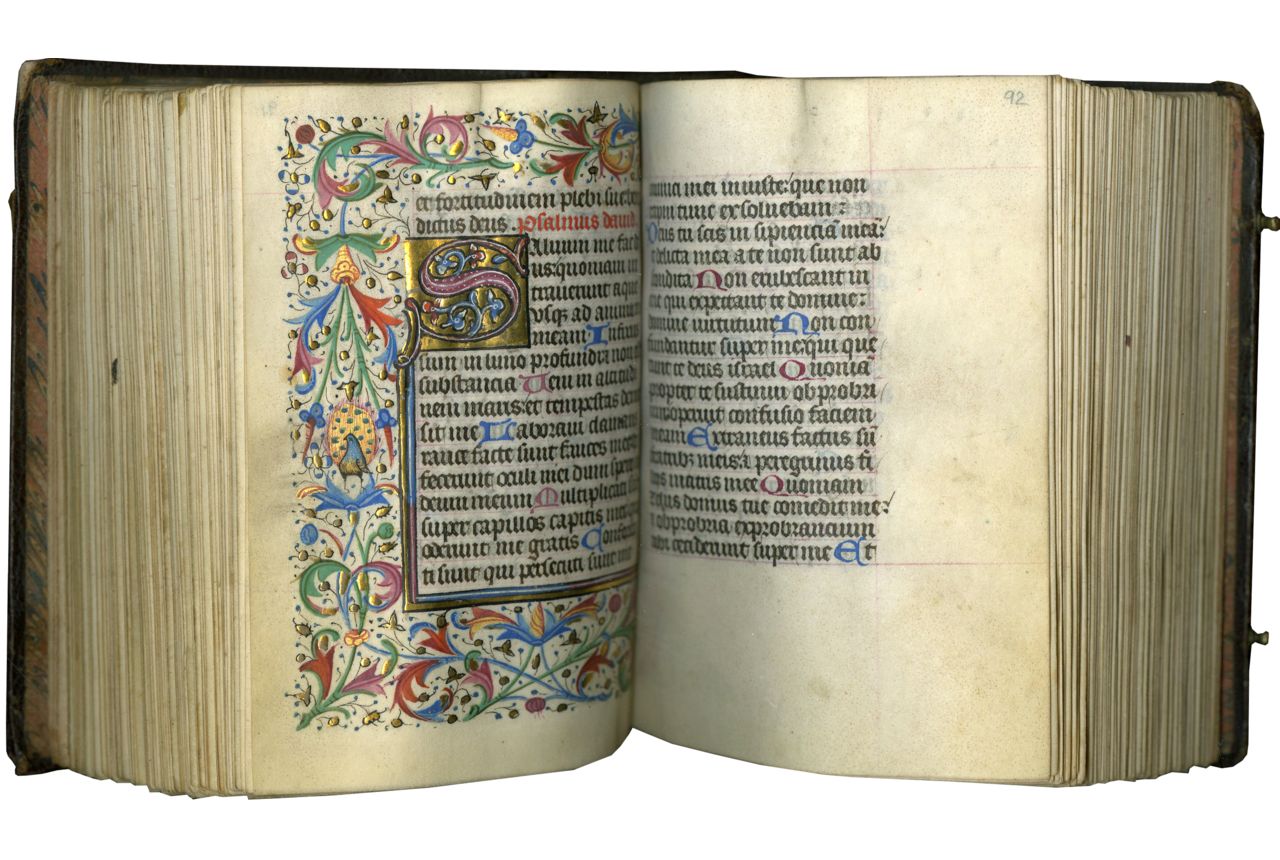 et fortitudinem plebi sue be
dictus deus. Psalmus dauid
Saluum me fac de
us: quoniam in
trauerunt aque
vsqꝫ ad animam
meam Infixus
sum in limo profundi et non est
substancia Ueni in altitudi
nem maris: et tempestas demer
sit me Laboraui clamans
rauce facte sunt fauces mee
fecerunt oculi mei dum spero
deum meum Multiplicati
super capillos capitis mei
oderunt me gratis Conforta
ti sunt qui persecuti sunt me
92
inimici mei iniuste: que non
rapui tunc exsoluebam:
Deus tu scis insipienciā meā:
et delicta mea a te non sunt ab
scondita Non erubescant in
me qui expectant te domine:
domine uirtutum Non con
fundantur super me: qui que
runt te deus israel Quoniā
propter te sustinui obprobri
um operuit confusio faciem
meam Extraneus factus sū
fratribꝫ meis: et peregrinus fi
lijs matris mee Quoniam
zelus domus tue comedit me:
et obprobria exprobrancium
tibi ceciderunt super me Et